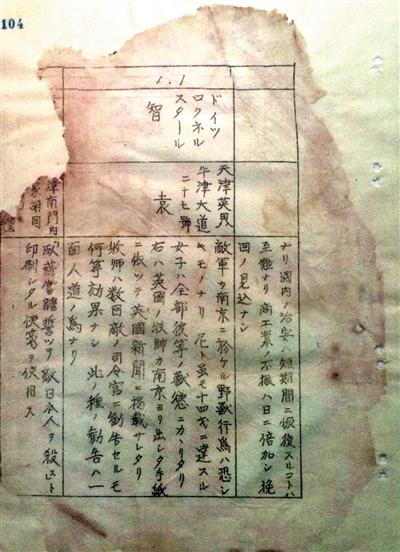 104
1.1
ドイツ
ロクネル
スタール
智
天津英界
牛津大道
二十七號
袁
ナリ國内ノ治安ハ短期間ニ恢復スルコトハ
至難ナリ商工業ノ不振ハ日ニ倍加シ挽
回ノ見込ナシ
敵軍カ南京ニ於ケル野獣行爲ハ恐シ
キモノナリ尼ト雖モ十四才ニ達スル
女子ハ全部彼等ノ獣慾ニカヽリタリ
右ハ英國ノ牧師カ南京ヨリ出シタ手紙
ニ依ツテ英國新聞ニ掲載サレタリ
牧師ハ数回敵ノ司令官ニ勧告セルモ
何等効果ナシ此ノ種ノ勧告ハ一
面人道ノ爲ナリ
津南門内
家胡同
「臥薪嘗膽誓ツテ敵日本人ヲ殺セ」ト
印刷シタル便箋ヲ使用ス